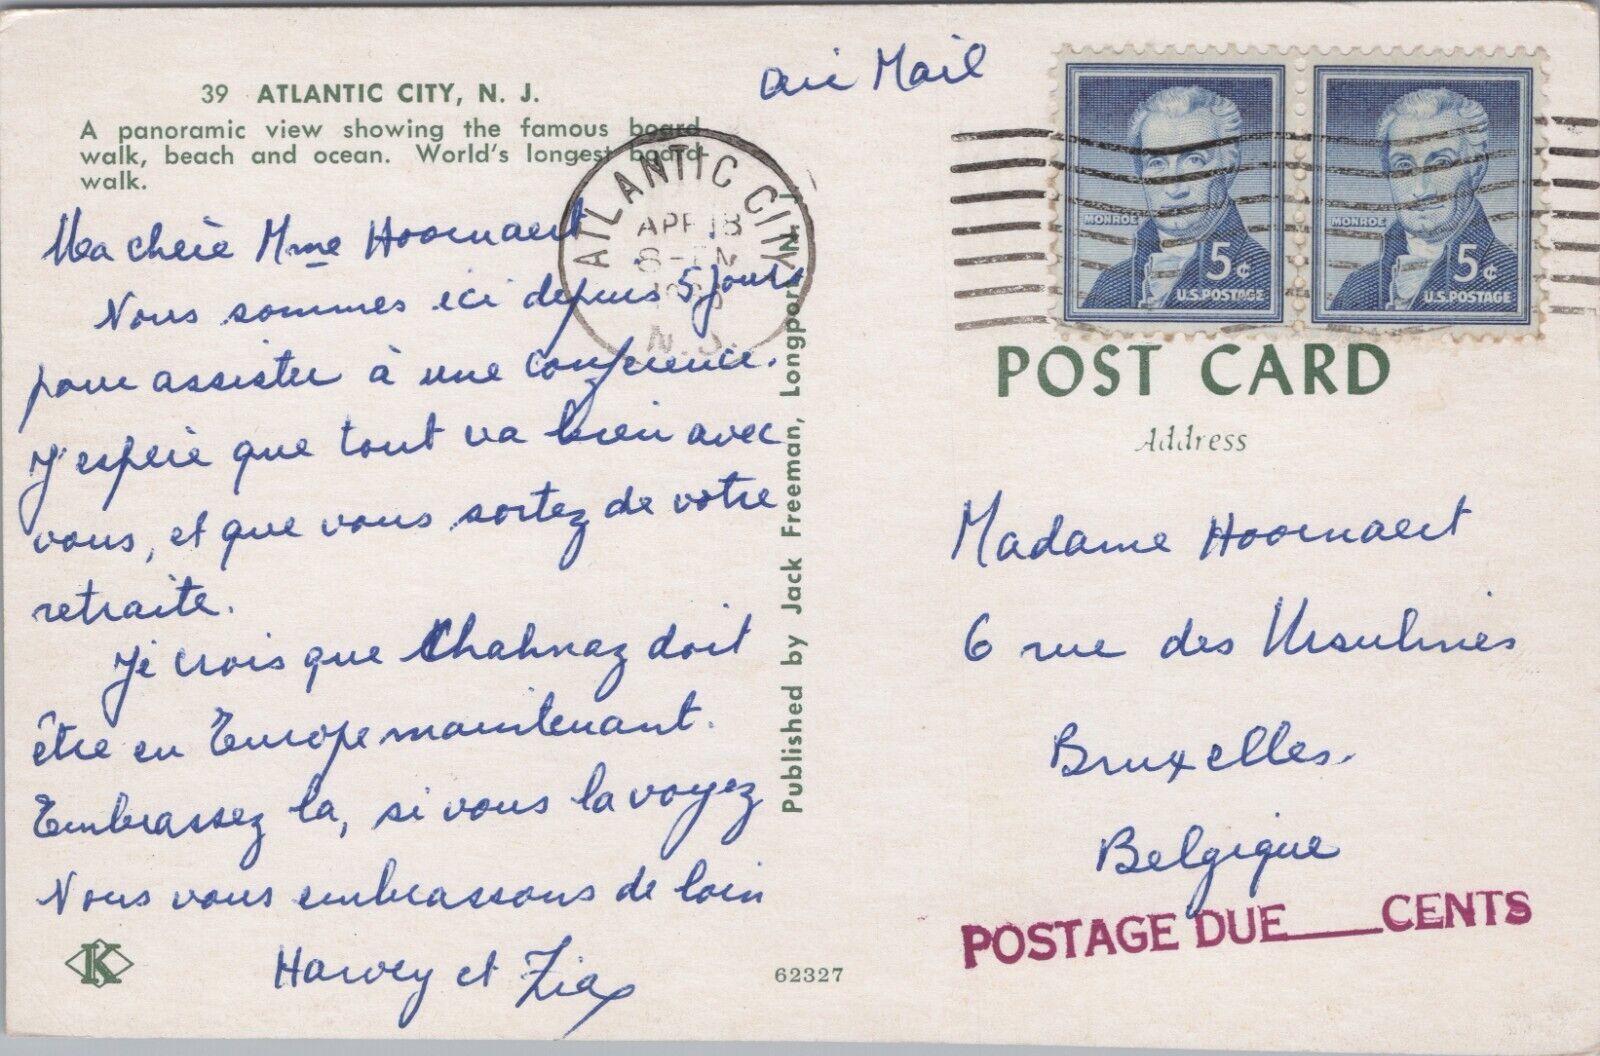 39 ATLANTIC CITY, N. J.
A panoramic view showing the famous board
walk, beach and ocean. World's longest board-
walk.
Ma chère Mme Hoornaert
Nous sommes ici depuis 5 jours
pour assister à une conférence.
J'espère que tout va bien avec
vous, et que vous sortez de votre
retraite.
Je crois que Chahnaz doit
être en Europe maintenant.
Embrassez la, si vous la voyez
Nous vous embrassons de loin
Harvey et Zia
K
62327
Published by Jack Freeman, Longport, N. J.
ATLANTIC CITY
APR 18
N.J.
Air Mail
MONROE
5¢
U.S. POSTAGE
MONROE
5¢
U.S. POSTAGE
POST CARD
Address
Madame Hoornaert
6 rue des Ursulines
Bruxelles.
Belgique
POSTAGE DUE____CENTS